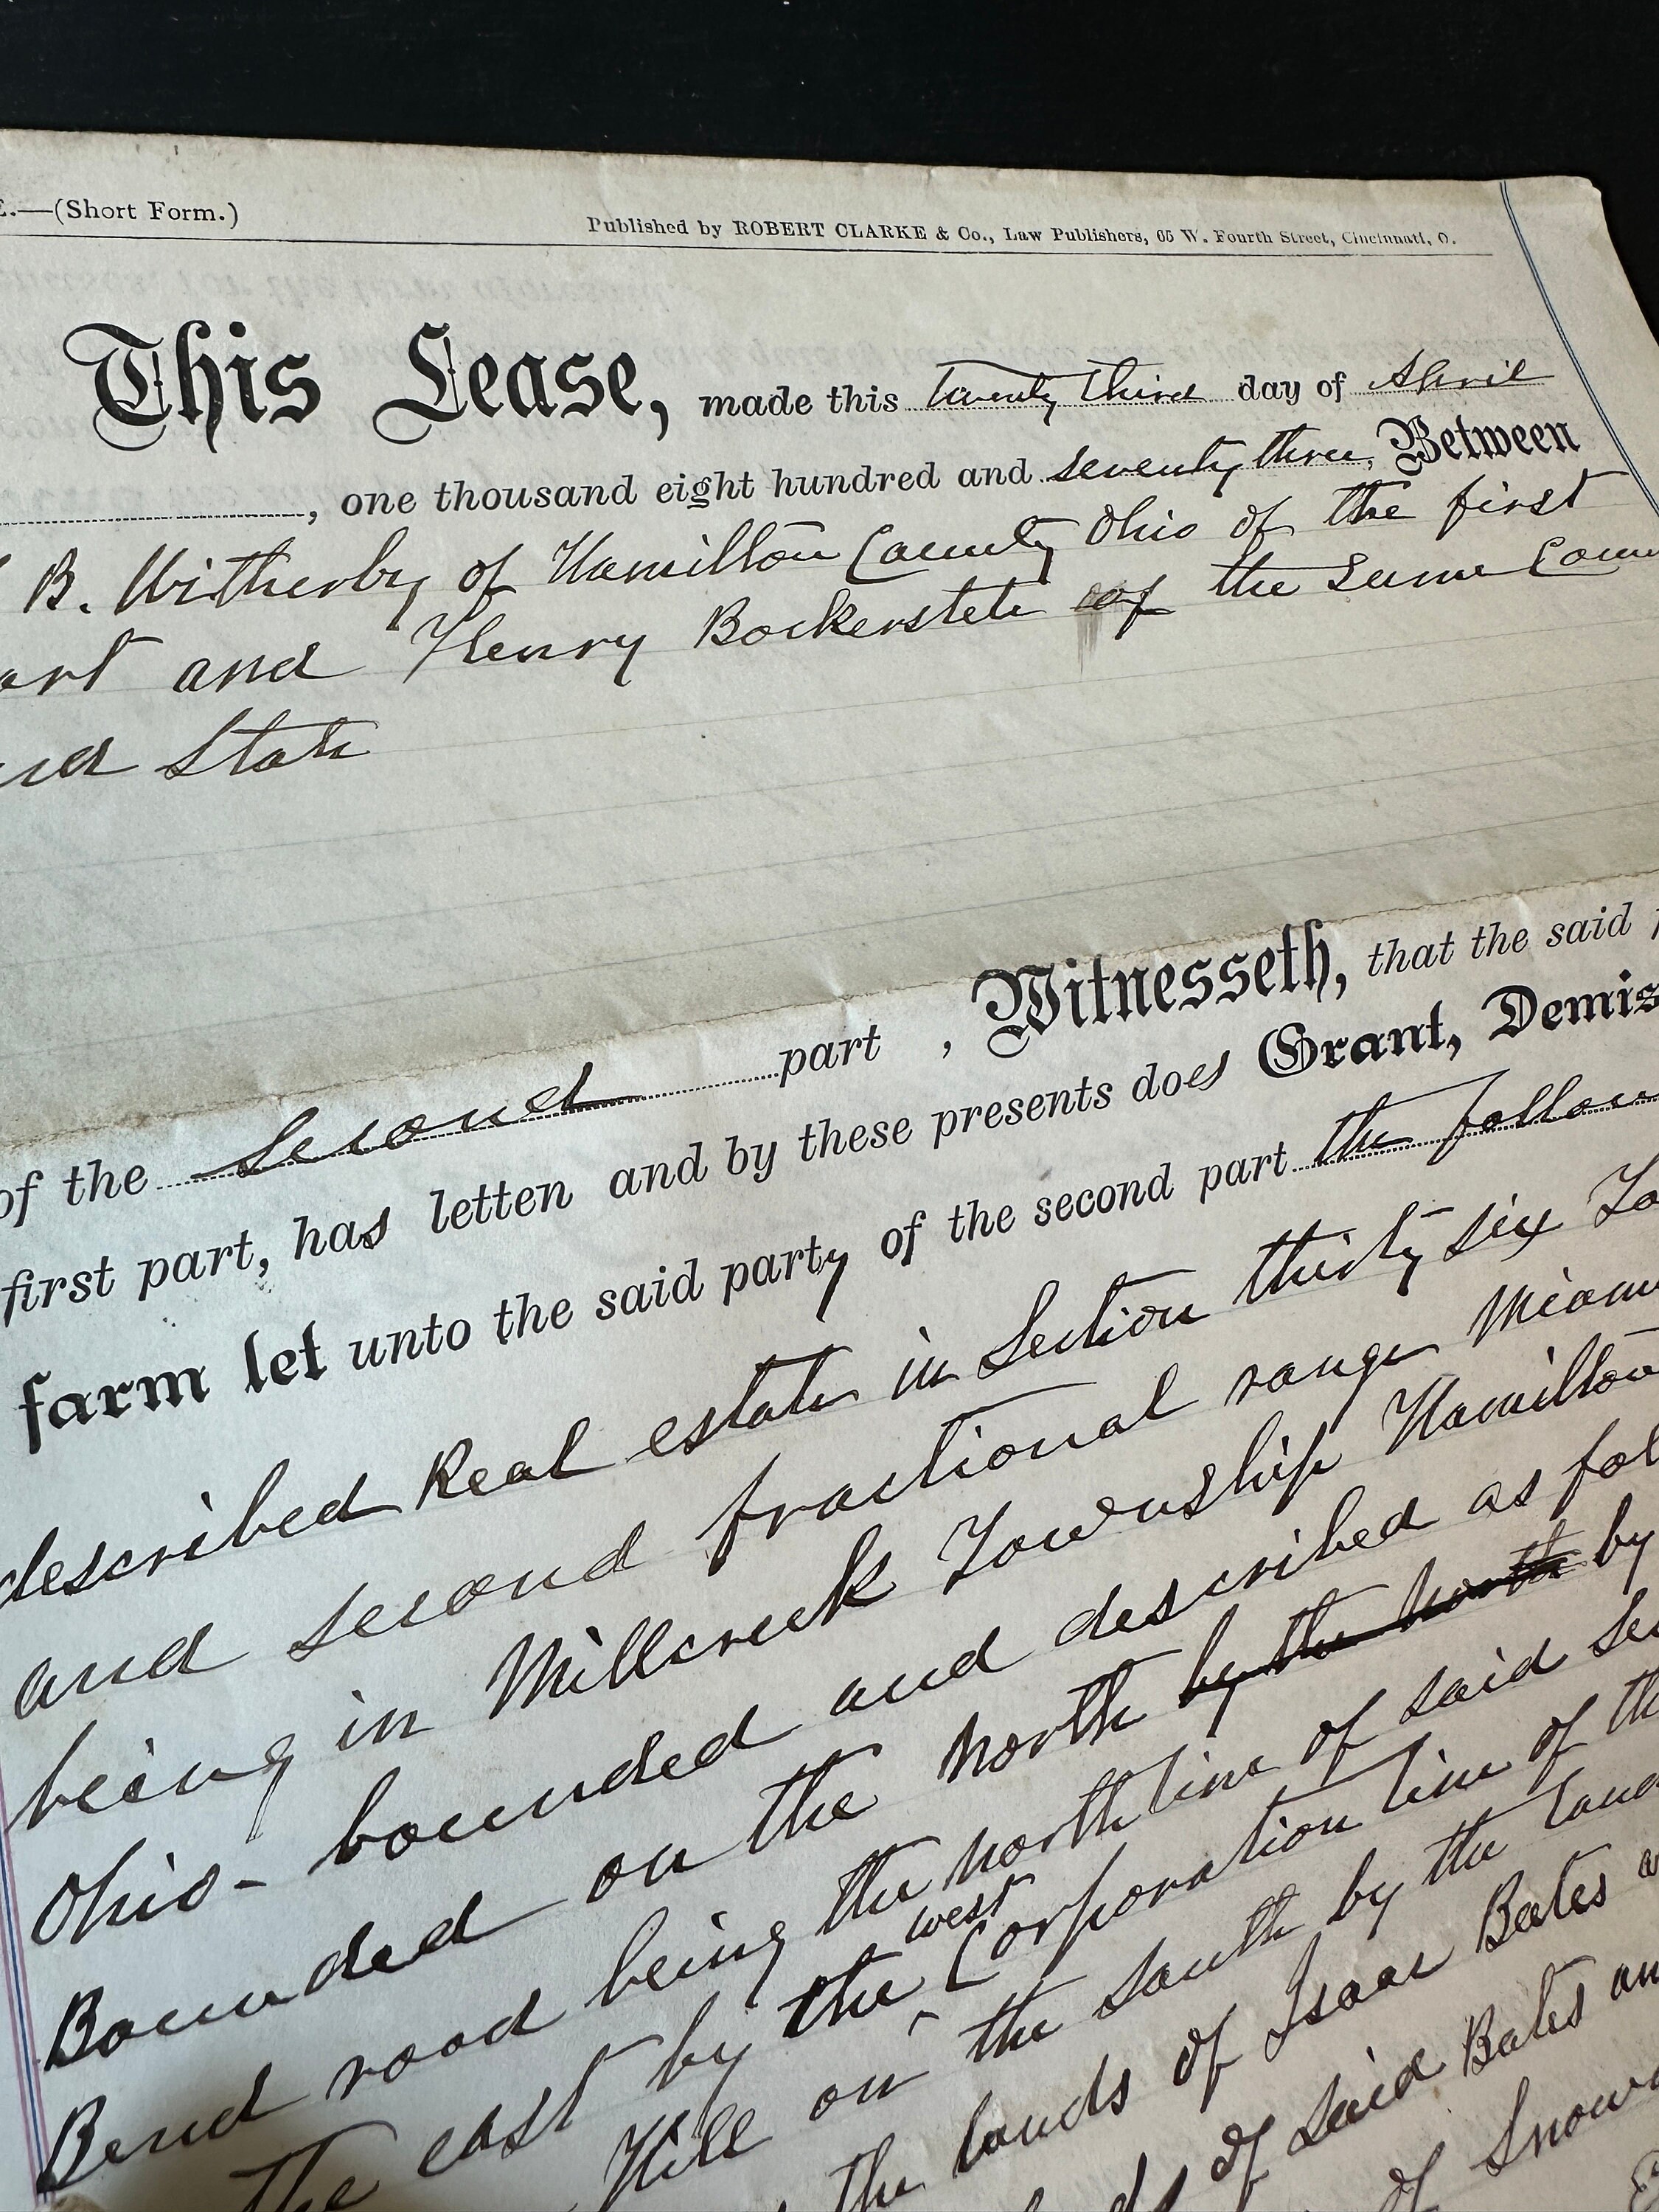 E.—(Short Form.)
Published by ROBERT CLARKE & Co., Law Publishers, 65 W. Fourth Street, Cincinnati, O.
This Lease, made this twenty third day of April
, one thousand eight hundred and seventy three, Between
B. Witherby of Hamilton County Ohio of the first
art and Henry Bockerstete of the same Coun
nd State
of the second part , Witnesseth, that the said p
first part, has letten and by these presents does Grant, Demis
farm let unto the said party of the second part the follow
described Real estate in Section thirty-six To
and second fractional range Miami
being in Millcreek Township Hamilton
Ohio- bounded and described as fol
Bounded on the north by the north by
Bend road being the north line of said Sec
the east by the west Corporation line of th
Hill on the south by the land
the lands of Isaac Bates a
ds of said Bates an
of Snow